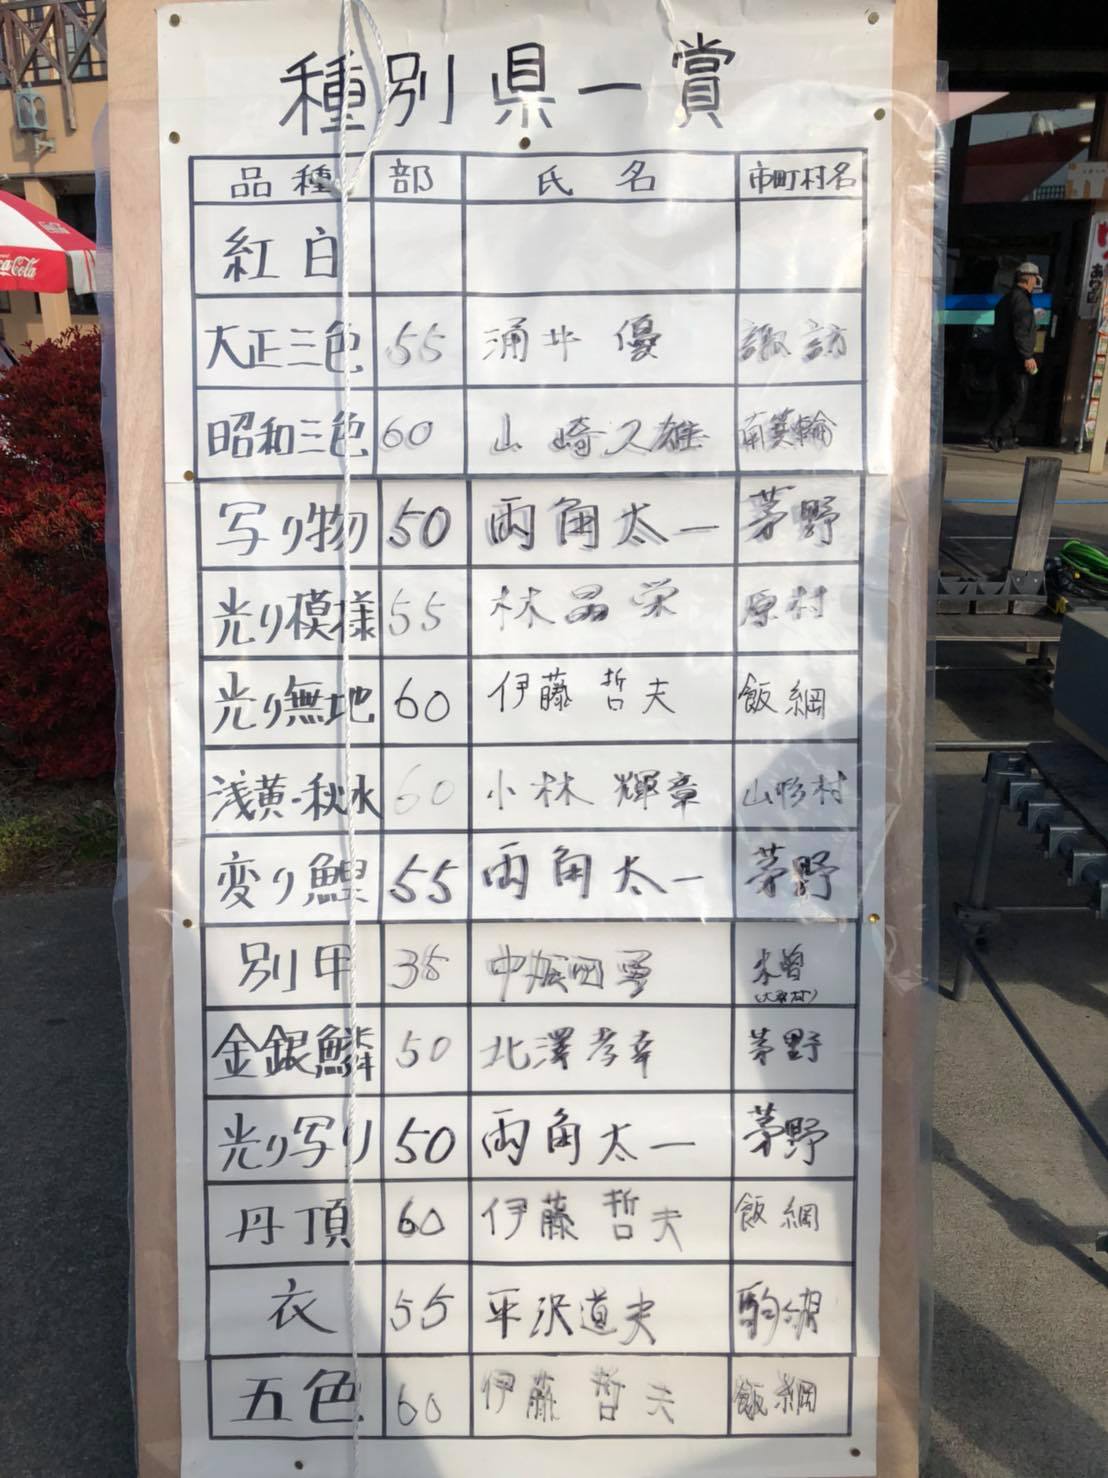 種別県一賞
品種 部 氏名 市町村名
紅白
大正三色 55 涌井 優 諏訪
昭和三色 60 山崎久雄 南箕輪
写り物 50 両角太一 茅野
光り模様 55 林晶栄 原村
光り無地 60 伊藤 哲夫 飯綱
浅黄・秋水 60 小林 輝章 山形村
変り鯉 55 両角太一 茅野
別甲 38 木曽
金銀鱗 50 北澤孝幸 茅野
光り写り 50 両角太一 茅野
丹頂 60 伊藤 哲夫 飯綱
衣 55 平沢道夫 駒ヶ根
五色 60 伊藤 哲夫 飯綱
Coca-Cola